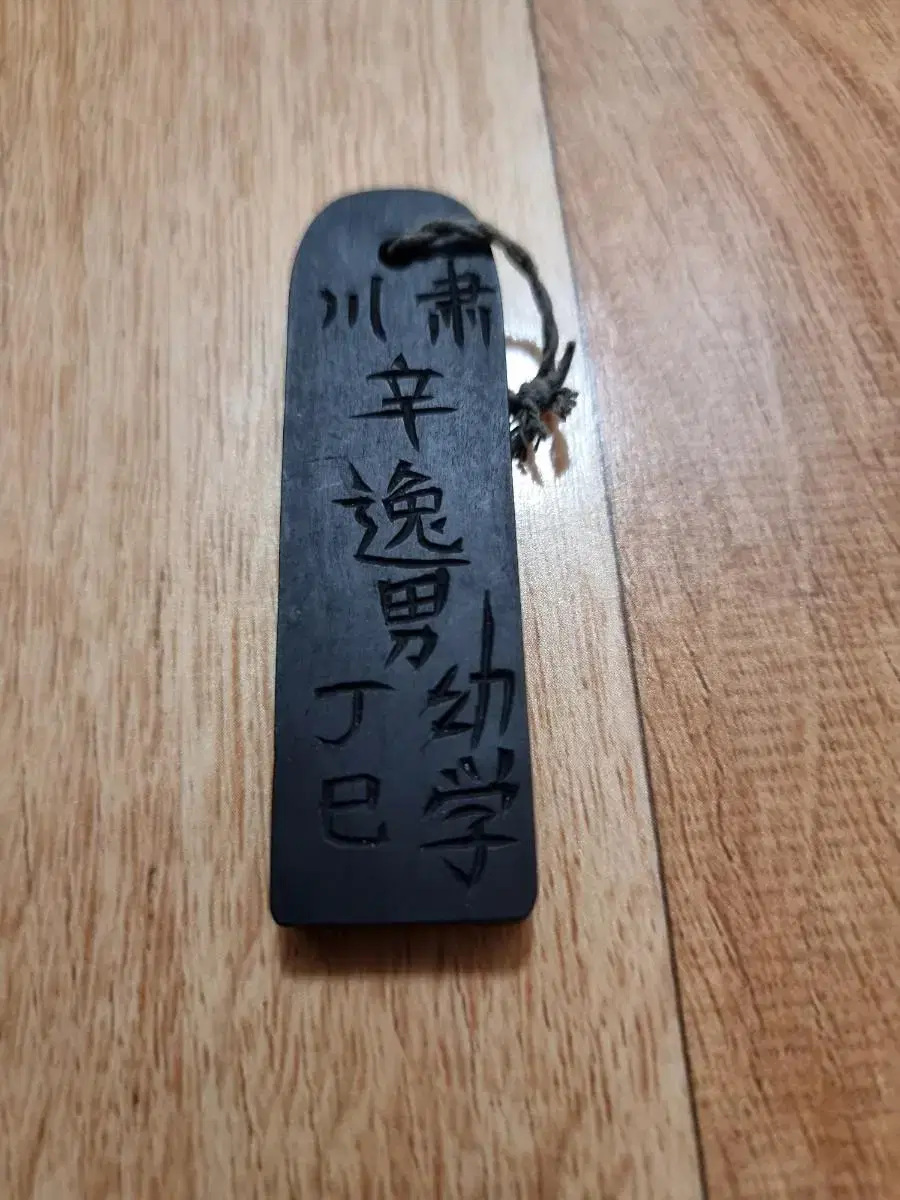 肃川
辛逸男
幼学
丁巳